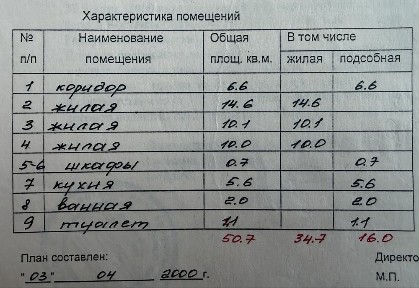 Характеристика помещений
№ Наименование Общая В том числе
п/п помещения площ. кв.м. жилая подсобная
1 коридор 6.6 6.6
2 жилая 14.6 14.6
3 жилая 10.1 10.1
4 жилая 10.0 10.0
5-6 шкафы 0.7 0.7
7 кухня 5.6 5.6
8 ванная 2.0 2.0
9 туалет 1.1 1.1
50.7 34.7 16.0
План составлен: Директо
"03" 04 2000 г. М.П.